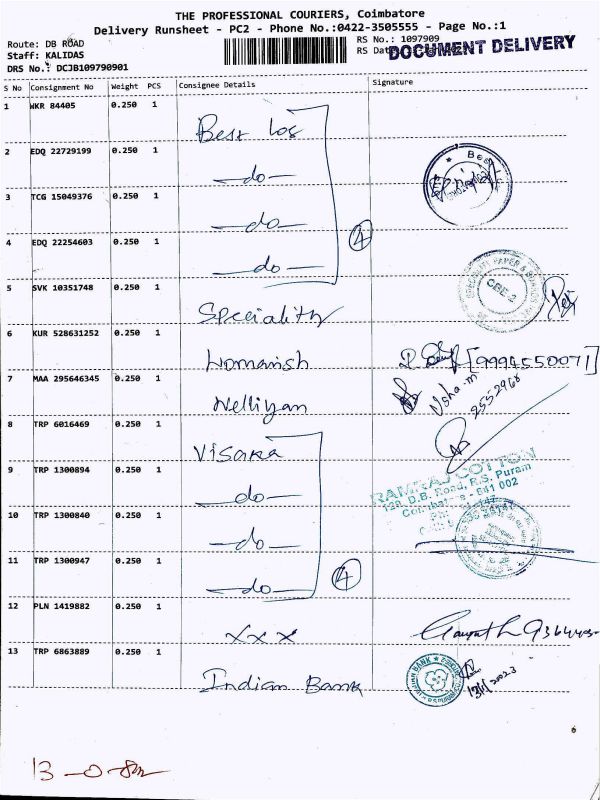 THE PROFESSIONAL COURIERS, Coimbatore
Delivery Runsheet - PC2 - Phone No.:0422-3505555 - Page No.:1
Route: DB ROAD
RS No.: 1097909
Staff: KALIDAS
DOCUMENT DELIVERY
DRS No.: DCJB109790901
S No Consignment No Weight PCS Consignee Details Signature
1 WKR 84405 0.250 1 Best Log
2 EDQ 22729199 0.250 1 —do—
3 TCG 15049376 0.250 1 —do—
4 EDQ 22254603 0.250 1 —do—
4
5 SVK 10351748 0.250 1 Speciality
CBE 2
6 KUR 528631252 0.250 1 Womanish
[9994550071]
7 MAA 295646345 0.250 1 Nelliyan
Usha.m
2552968
8 TRP 6016469 0.250 1 Visaka
9 TRP 1300894 0.250 1 —do—
RAMRAJ COTTON
D.B. Road, R.S. Puram
Coimbatore - 641 002
10 TRP 1300840 0.250 1 —do—
11 TRP 1300947 0.250 1 —do—
4
12 PLN 1419882 0.250 1 xxx
13 TRP 6863889 0.250 1 Indian Bank
6